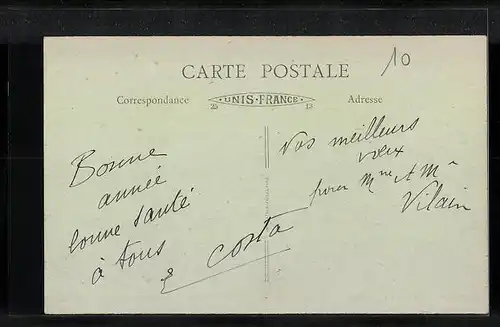 10
CARTE POSTALE
Correspondance
UNIS-FRANCE
25 13
Adresse
Bonne
année
bonne santé
à tous
E Costa
Vos meilleurs
vœux
pour Mme et Mr
Vilain